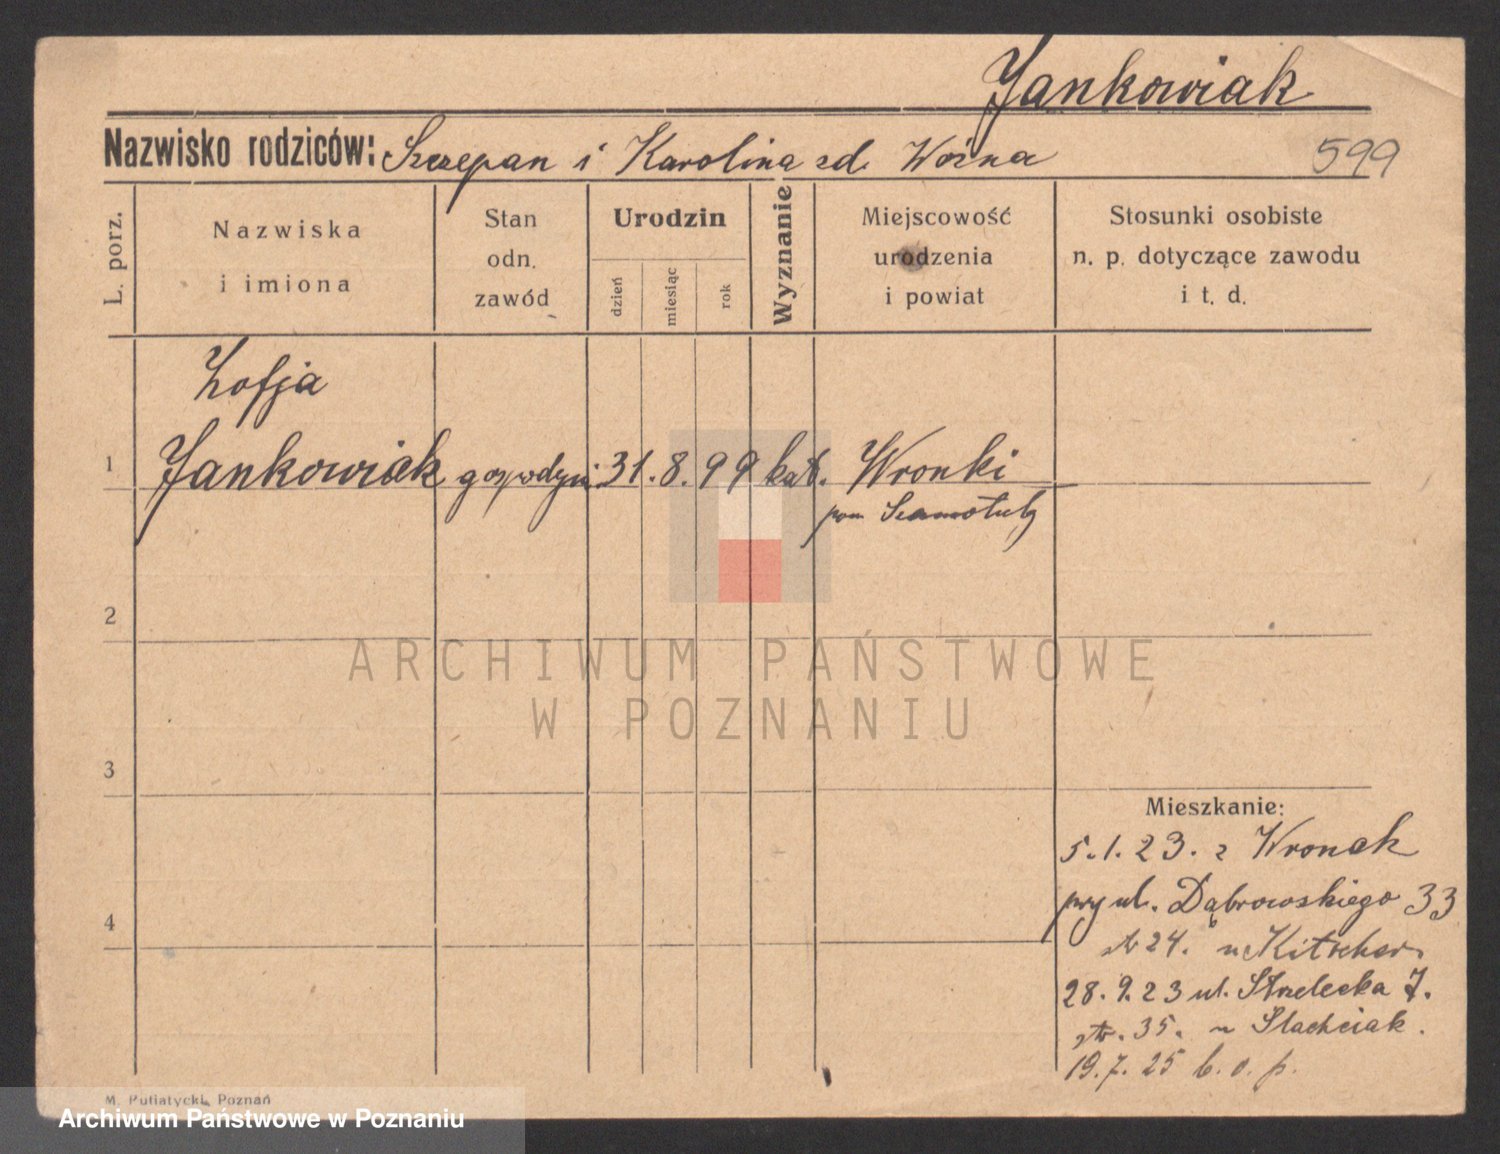 Jankowiak
Nazwisko rodziców: Szczepan i Karolina zd. Woźna
599
L. porz.
Nazwiska
i imiona
Stan
odn.
zawód
Urodzin
dzień
miesiąc
rok
Wyznanie
Miejscowość
urodzenia
i powiat
Stosunki osobiste
n. p. dotyczące zawodu
i t. d.
Zofja
1 Jankowiak gospodyni 31. 8. 99 kat. Wronki
pow Szamotuły
2
ARCHIWUM PAŃSTWOWE
W POZNANIU
3
Mieszkanie:
5.1.23. z Wronek
przy ul. Dąbrowskiego 33
4
str 24. u Kitscher
28.9.23 ul. Strzelecka 7.
str. 35. u Stachciak.
19.7.25 b. o. p.
M. Putiatycki, Poznań
Archiwum Państwowe w Poznaniu